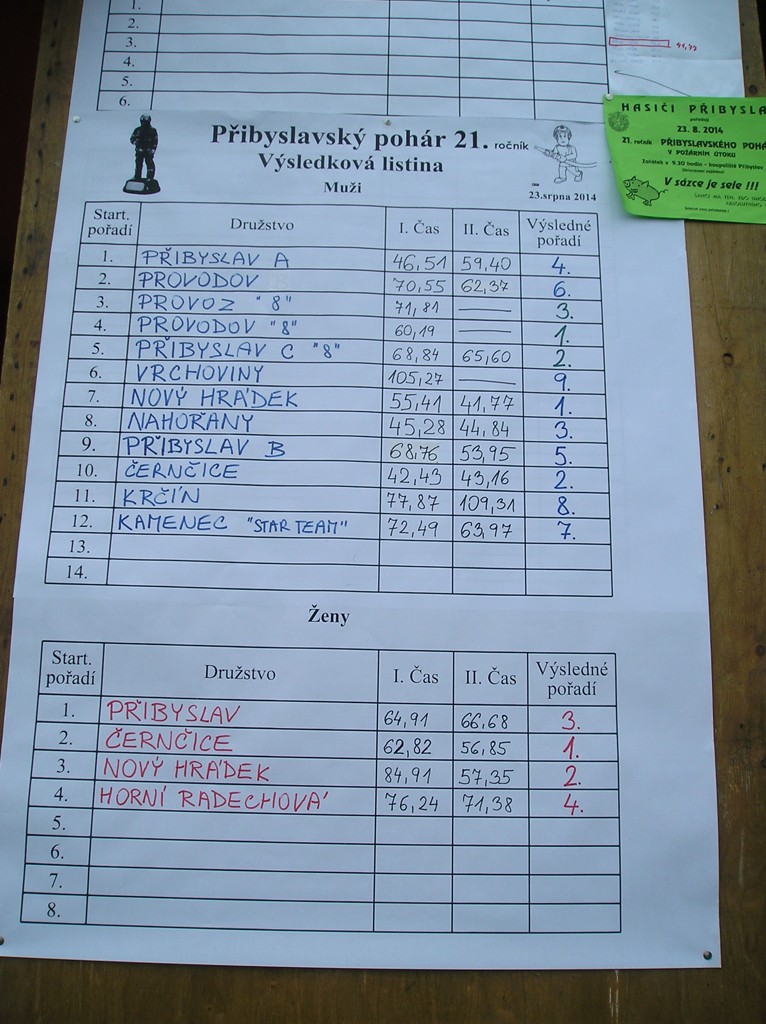 1.
2.
3.
4.
5.
6.
Přibyslavský pohár 21. ročník
Výsledková listina
Muži
23.srpna 2014
HASIČI PŘIBYSLA
23. 8. 2014
21. ročník PŘIBYSLAVSKÉHO POHÁ
V POŽÁRNÍM ÚTOKU
V sázce je sele !!!
Start. pořadí Družstvo I. Čas II. Čas Výsledné pořadí
1. PŘIBYSLAV A 46,51 59,40 4.
2. PROVODOV 70,55 62,37 6.
3. PROVOZ "8" 71,81 — 3.
4. PROVODOV "8" 60,19 — 1.
5. PŘIBYSLAV C "8" 68,84 65,60 2.
6. VRCHOVINY 105,27 — 9.
7. NOVÝ HRÁDEK 55,41 41,77 1.
8. NAHOŘANY 45,28 44,84 3.
9. PŘIBYSLAV B 68,76 53,95 5.
10. ČERNČICE 42,43 43,16 2.
11. KRČÍN 77,87 109,31 8.
12. KAMENEC "STAR TEAM" 72,49 63,97 7.
13.
14.
Ženy
Start. pořadí Družstvo I. Čas II. Čas Výsledné pořadí
1. PŘIBYSLAV 64,91 66,68 3.
2. ČERNČICE 62,82 56,85 1.
3. NOVÝ HRÁDEK 84,91 57,35 2.
4. HORNÍ RADECHOVÁ 76,24 71,38 4.
5.
6.
7.
8.